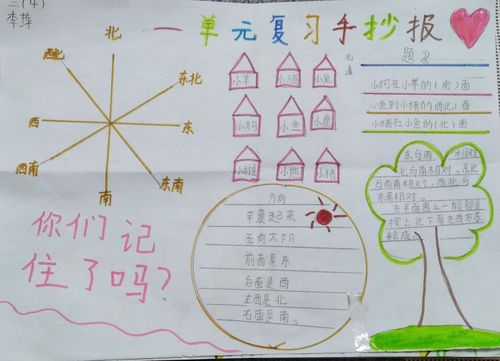 三(4)
李萍
一单元复习手抄报
北
西北
东北
西
东
西南
东南
南
小羊
小猫
小兔
小狗
小鱼
小鹿
小猴
小熊
小猪
题2
小狗在小羊的(南)面
小鱼到小猪的(西北)面
小猫在小鱼的(北)面
你们记
住了吗?
方向
早晨起来
面向太阳
前面是东
后面是西
左面是北
右面是南。
东与西 相对
北与南相对,东北
与西南相对,西北与
东南相对。
在平面图上一般都是
按上北下南左西右东
绘成。